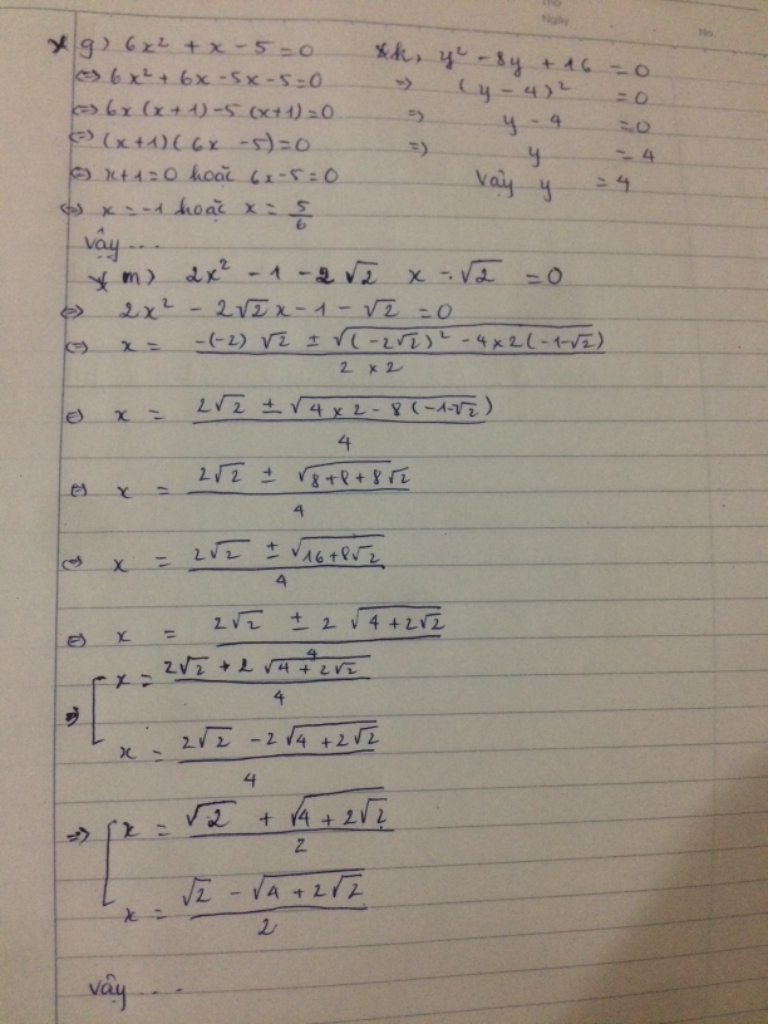 Thứ
Ngày
No.
* g) 6x² + x - 5 = 0
⇔ 6x² + 6x - 5x - 5 = 0
⇔ 6x (x + 1) - 5 (x + 1) = 0
⇔ (x + 1) (6x - 5) = 0
⇔ x + 1 = 0 hoặc 6x - 5 = 0
⇔ x = -1 hoặc x = 5/6
vậy ...
* k, y² - 8y + 16 = 0
⇒ (y - 4)² = 0
⇒ y - 4 = 0
⇒ y = 4
Vậy y = 4
* m) 2x² - 1 - 2√2 x - √2 = 0
⇔ 2x² - 2√2x - 1 - √2 = 0
⇔ x = (-(-2) √2 ± √((-2√2)² - 4 × 2 (-1-√2))) / (2 × 2)
⇔ x = (2√2 ± √(4 × 2 - 8 (-1-√2))) / 4
⇔ x = (2√2 ± √(8 + 8 + 8√2)) / 4
⇔ x = (2√2 ± √(16 + 8√2)) / 4
⇔ x = (2√2 ± 2√(4 + 2√2)) / 4
⇒ [ x = (2√2 + 2√(4 + 2√2)) / 4
x = (2√2 - 2√(4 + 2√2)) / 4
⇒ [ x = (√2 + √(4 + 2√2)) / 2
x = (√2 - √(4 + 2√2)) / 2
vậy ...